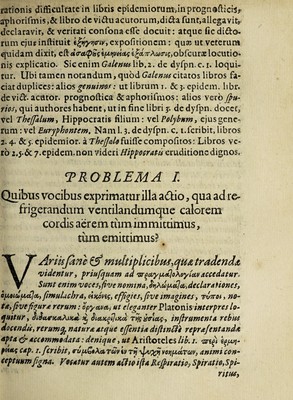 rationis difficultate in libris epidemiorum, in prognosticis,
aphorismis, & libro de victu acutorum, dicta sunt, allegavit,
declaravit, & veritati consona esse docuit: atque sic dicto-
rum ejus instituit ἐξήγησιν, expositionem: quæ ut veterum
quidam dixit, est ἀσαφοῦς ἑρμηνείας ἐξάπλωσις, obscuræ locutio-
nis explicatio. Sic enim Galenus lib. 2. de dyspn. c. 1. loqui-
tur. Ubi tamen notandum, quòd Galenus citatos libros fa-
ciat duplices: alios genuinos: ut librum 1. & 3. epidem. libr.
de vict. acutor. prognostica & aphorismos: alios verò spu-
rios, qui authores habent, ut in fine libri 3. de dyspn. docet,
vel Thessalum, Hippocratis filium: vel Polybum, ejus gene-
rum: vel Euryphontem. Nam l. 3. de dyspn. c. 1. scribit, libros
2. 4. & 5. epidemior. à Thessalo fuisse compositos: Libros ve-
rò 2. 5. & 7. epidem. non videri Hippocratis eruditione dignos.
PROBLEMA I.
Quibus vocibus exprimatur illa actio, qua ad re-
frigerandum ventilandumque calorem
cordis aërem tùm immittimus,
tùm emittimus?
VAriis sanè & multiplicibus, quæ tradendæ
videntur, priusquam ad πραγματολογίαν accedatur.
Sunt enim voces, sive nomina, δηλώματα, declarationes,
ὁμοιώματα, simulachra, εἰκόνες, effigies, sive imagines, τύποι, no-
tæ, sive figuræ rerum: ὄργανα, ut eleganter Platonis interpres lo-
quitur, διδασκαλικὰ ἢ διακριτικὰ τῆς οὐσίας, instrumenta rebus
docendis, rerumq́ natura atque essentia distinctè repræsentandæ
apta & accommoda: denique, ut Aristoteles lib. 1. περὶ ἑρμη-
νείας cap. 1. scribit, σύμβολα τῶν ἐν τῇ ψυχῇ νοημάτων, animi con-
ceptuum signa. Vocatur autem actio ista Respiratio, Spiratio, Spi-
ritus,